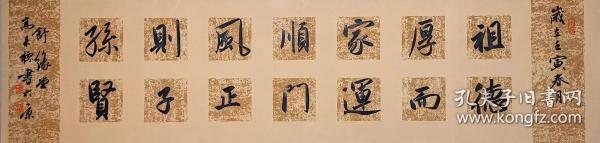 歲在壬寅春
祖德
厚而
家運
順門
風正
則子
孫賢
孔夫子旧书网
www.kongfz.com